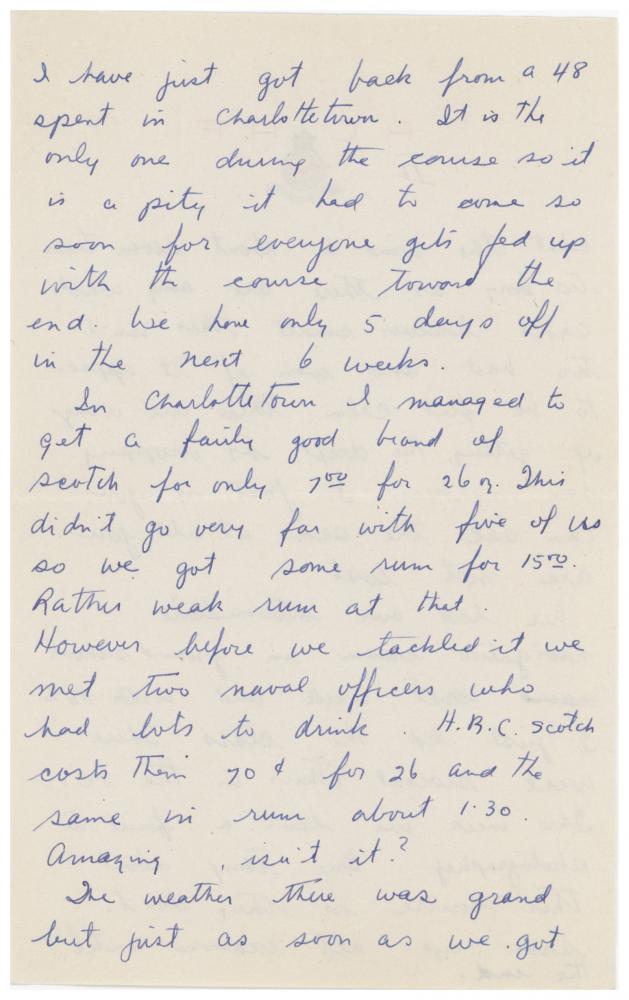 I have just got back from a 48
spent in Charlottetown. It is the
only one during the course so it
is a pity it had to come so
soon for everyone gets fed up
with the course toward the
end. We have only 5 days off
in the next 6 weeks.
In Charlottetown I managed to
get a fairly good brand of
scotch for only 7.00 for 26 oz. This
didn't go very far with five of us
so we got some rum for 15.00.
Rather weak rum at that.
However before we tackled it we
met two naval officers who
had lots to drink. H.B.C. scotch
costs them 70¢ for 26 and the
same in rum about 1.30.
Amazing, isn't it?
The weather there was grand
but just as soon as we got